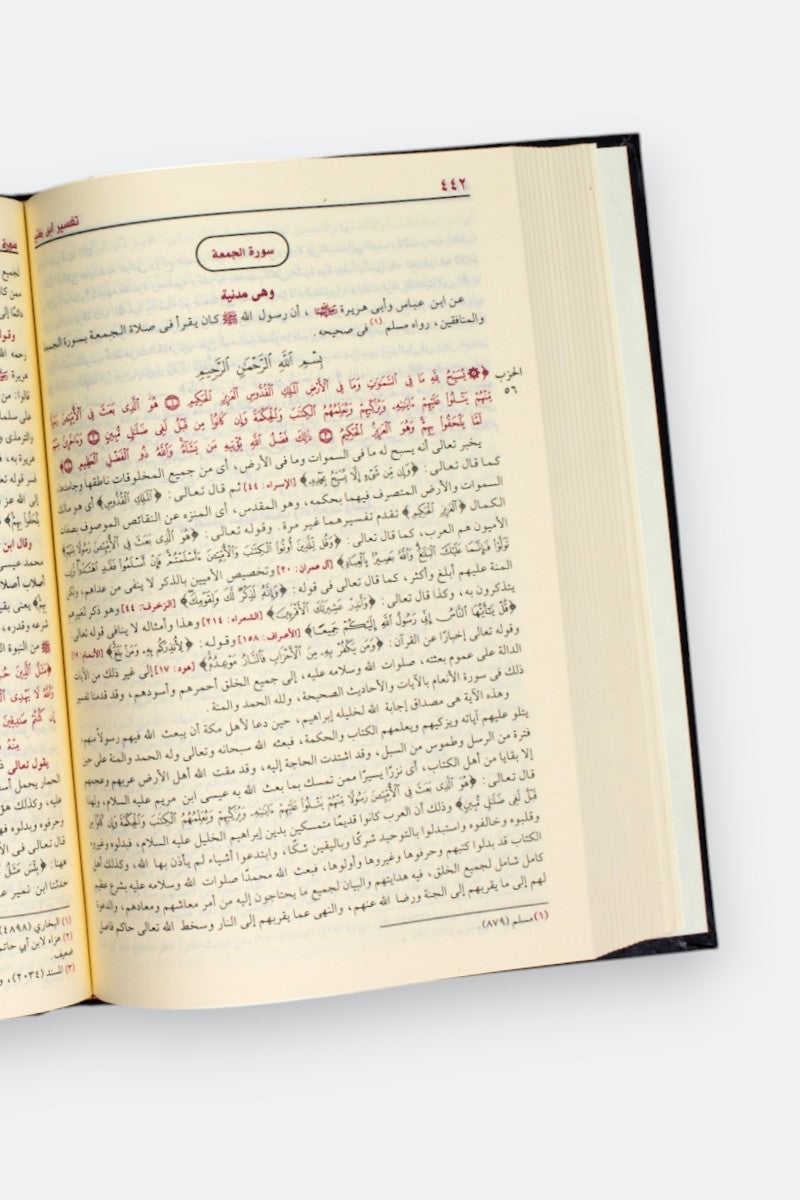 ٤٤٢
تفسير ابن كثير
سورة الجمعة
وهى مدنية
عن ابن عباس وأبى هريرة رضي الله عنهم ، أن رسول الله ﷺ كان يقرأ فى صلاة الجمعة بسورة الجمعة
والمنافقين ، رواه مسلم (١) فى صحيحه .
بِسْمِ ٱللَّهِ ٱلرَّحْمَٰنِ ٱلرَّحِيمِ
الحزب
٥٦
﴿ يُسَبِّحُ لِلَّهِ مَا فِى ٱلسَّمَٰوَٰتِ وَمَا فِى ٱلْأَرْضِ ٱلْمَلِكِ ٱلْقُدُّوسِ ٱلْعَزِيزِ ٱلْحَكِيمِ ١ هُوَ ٱلَّذِى بَعَثَ فِى ٱلْأُمِّيِّـۧنَ رَسُولًا
مِّنْهُمْ يَتْلُوا۟ عَلَيْهِمْ ءَايَٰتِهِۦ وَيُزَكِّيهِمْ وَيُعَلِّمُهُمُ ٱلْكِتَٰبَ وَٱلْحِكْمَةَ وَإِن كَانُوا۟ مِن قَبْلُ لَفِى ضَلَٰلٍ مُّبِينٍ ٢ وَءَاخَرِينَ مِنْهُمْ
لَمَّا يَلْحَقُوا۟ بِهِمْ وَهُوَ ٱلْعَزِيزُ ٱلْحَكِيمُ ٣ ذَٰلِكَ فَضْلُ ٱللَّهِ يُؤْتِيهِ مَن يَشَآءُ وَٱللَّهُ ذُو ٱلْفَضْلِ ٱلْعَظِيمِ ٤ ﴾
يخبر تعالى أنه يسبح له ما فى السموات وما فى الأرض، أى من جميع المخلوقات ناطقها وجامدها،
كما قال تعالى: ﴿وَإِن مِّن شَىْءٍ إِلَّا يُسَبِّحُ بِحَمْدِهِۦ﴾ [الإسراء: ٤٤] ثم قال تعالى: ﴿ٱلْمَلِكِ ٱلْقُدُّوسِ﴾ أى هو مالك
السموات والأرض المتصرف فيهما بحكمه، وهو المقدس، أى المنزه عن النقائص الموصوف بصفات
الكمال ﴿ٱلْعَزِيزِ ٱلْحَكِيمِ﴾ تقدم تفسيرهما غير مرة. وقوله تعالى: ﴿هُوَ ٱلَّذِى بَعَثَ فِى ٱلْأُمِّيِّـۧنَ رَسُولًا مِّنْهُمْ﴾
الأميون هم العرب، كما قال تعالى: ﴿وَقُل لِّلَّذِينَ أُوتُوا۟ ٱلْكِتَٰبَ وَٱلْأُمِّيِّـۧنَ ءَأَسْلَمْتُمْ فَإِنْ أَسْلَمُوا۟ فَقَدِ ٱهْتَدَوا۟ وَّإِن
تَوَلَّوْا۟ فَإِنَّمَا عَلَيْكَ ٱلْبَلَٰغُ وَٱللَّهُ بَصِيرٌۢ بِٱلْعِبَادِ﴾ [آل عمران: ٢٠] وتخصيص الأميين بالذكر لا ينفى من عداهم، ولكن
المنة عليهم أبلغ وأكثر، كما قال تعالى فى قوله: ﴿وَإِنَّهُۥ لَذِكْرٌ لَّكَ وَلِقَوْمِكَ﴾ [الزخرف: ٤٤] وهو ذكر لغيرهم
يتذكرون به، وكذا قال تعالى: ﴿وَأَنذِرْ عَشِيرَتَكَ ٱلْأَقْرَبِينَ﴾ [الشعراء: ٢١٤] وهذا وأمثاله لا ينافى قوله تعالى
﴿قُلْ يَٰٓأَيُّهَا ٱلنَّاسُ إِنِّى رَسُولُ ٱللَّهِ إِلَيْكُمْ جَمِيعًا﴾ [الأعراف: ١٥٨] وقوله: ﴿لِأُنذِرَكُم بِهِۦ وَمَنۢ بَلَغَ﴾ [الأنعام: ١٩]
وقوله تعالى إخبارًا عن القرآن: ﴿وَمَن يَكْفُرْ بِهِۦ مِنَ ٱلْأَحْزَابِ فَٱلنَّارُ مَوْعِدُهُۥ﴾ [هود: ١٧] إلى غير ذلك من الآيات
الدالة على عموم بعثته، صلوات الله وسلامه عليه، إلى جميع الخلق أحمرهم وأسودهم، وقد قدمنا تفسير
ذلك فى سورة الأنعام بالآيات والأحاديث الصحيحة، ولله الحمد والمنة .
وهذه الآية هى مصداق إجابة الله لخليله إبراهيم، حين دعا لأهل مكة أن يبعث الله فيهم رسولاً منهم،
يتلو عليهم آياته ويزكيهم ويعلمهم الكتاب والحكمة، فبعثه الله سبحانه وتعالى وله الحمد والمنة على حين
فترة من الرسل وطموس من السبل، وقد اشتدت الحاجة إليه، وقد مقت الله أهل الأرض عربهم وعجمهم
إلا بقايا من أهل الكتاب، أى نزرًا يسيرًا ممن تمسك بما بعث الله به عيسى ابن مريم عليه السلام، ولهذا
قال تعالى: ﴿هُوَ ٱلَّذِى بَعَثَ فِى ٱلْأُمِّيِّـۧنَ رَسُولًا مِّنْهُمْ يَتْلُوا۟ عَلَيْهِمْ ءَايَٰتِهِۦ وَيُزَكِّيهِمْ وَيُعَلِّمُهُمُ ٱلْكِتَٰبَ وَٱلْحِكْمَةَ وَإِن كَانُوا۟ مِن
قَبْلُ لَفِى ضَلَٰلٍ مُّبِينٍ﴾ وذلك أن العرب كانوا قديمًا متمسكين بدين إبراهيم الخليل عليه السلام، فبدلوه وغيروه
وقلبوه وخالفوه واستبدلوا بالتوحيد شركًا وباليقين شكًا، وابتدعوا أشياء لم يأذن بها الله، وكذلك أهل
الكتاب قد بدلوا كتبهم وحرفوها وغيروها وأولوها، فبعث الله محمدًا صلوات الله وسلامه عليه بشرع عظيم
كامل شامل لجميع الخلق، فيه هدايتهم والبيان لجميع ما يحتاجون إليه من أمر معاشهم ومعادهم، والدعوة
لهم إلى ما يقربهم إلى الجنة ورضا الله عنهم، والنهى عما يقربهم إلى النار وسخط الله تعالى حاكم فاصل
(١) مسلم (٨٧٩).
سورة
لجميع
وقوله
رحمه الله
قالوا: من
على سلمان
والترمذى و
هريرة به،
فسر قوله تعالى
إلى الله عز
وقال ابن
محمد عيسى
أصلاب أصلاب
يعنى بقية
شرعه وقدره،
ﷺ من النبوة
يقول تعالى
الحمار يحمل أسفارا
عليه، وكذلك هؤلاء
وحرفوه وبدلوه فهم
قال تعالى فى
حدثنا ابن نمير عن
(١) البخارى (٤٨٩٨)
(٢) عزاه لابن أبي حاتم
ضعيف.
(٣) المسند (٢٠٣٤)، و